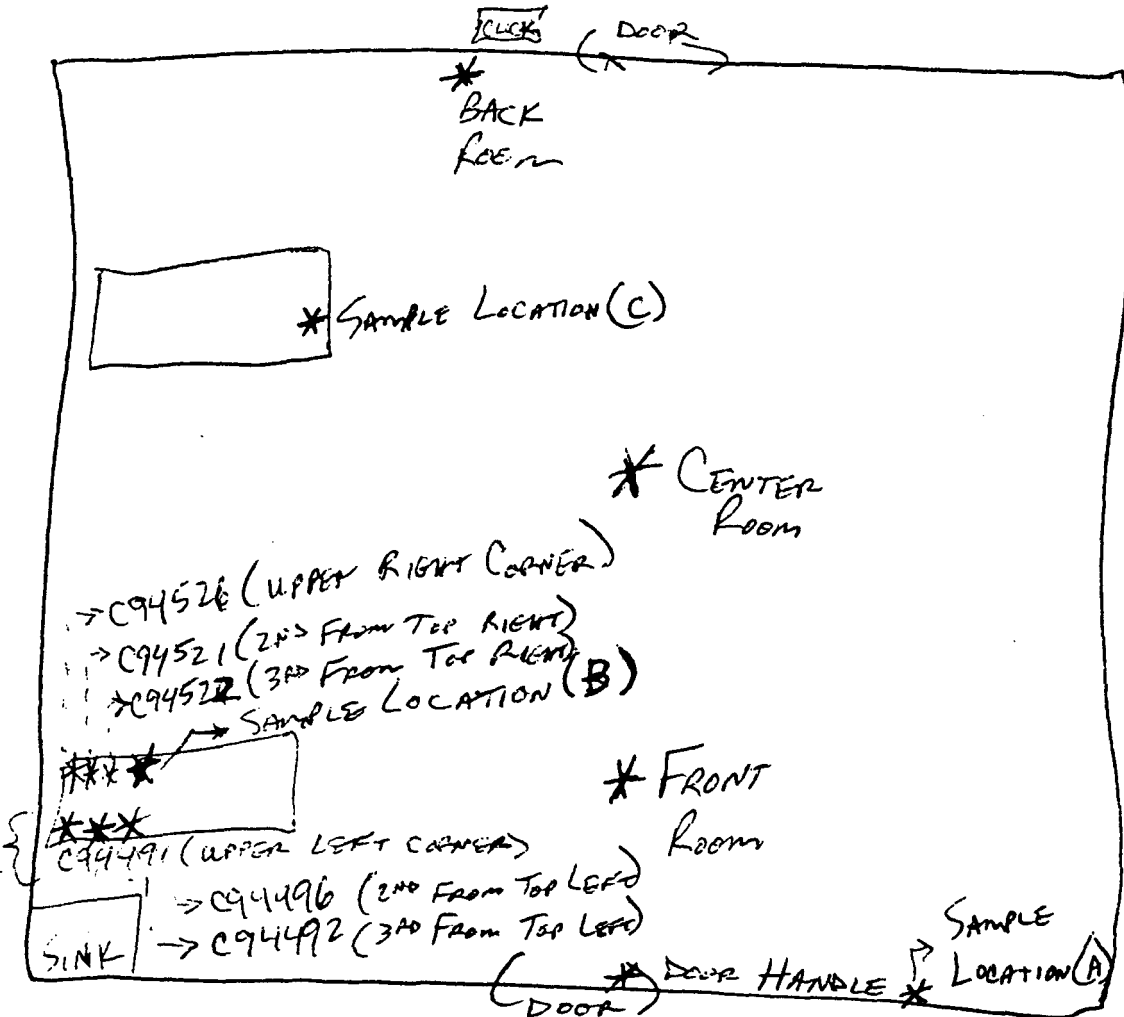 CLOCK
DOOR
BACK
ROOM
SAMPLE LOCATION (C)
CENTER
ROOM
C94526 (UPPER RIGHT CORNER)
C94521 (2ND FROM TOP RIGHT)
C94522 (3RD FROM TOP RIGHT)
SAMPLE LOCATION (B)
FRONT
ROOM
C94491 (UPPER LEFT CORNER)
C94496 (2ND FROM TOP LEFT)
C94492 (3RD FROM TOP LEFT)
SINK
DOOR HANDLE
DOOR
SAMPLE
LOCATION (A)